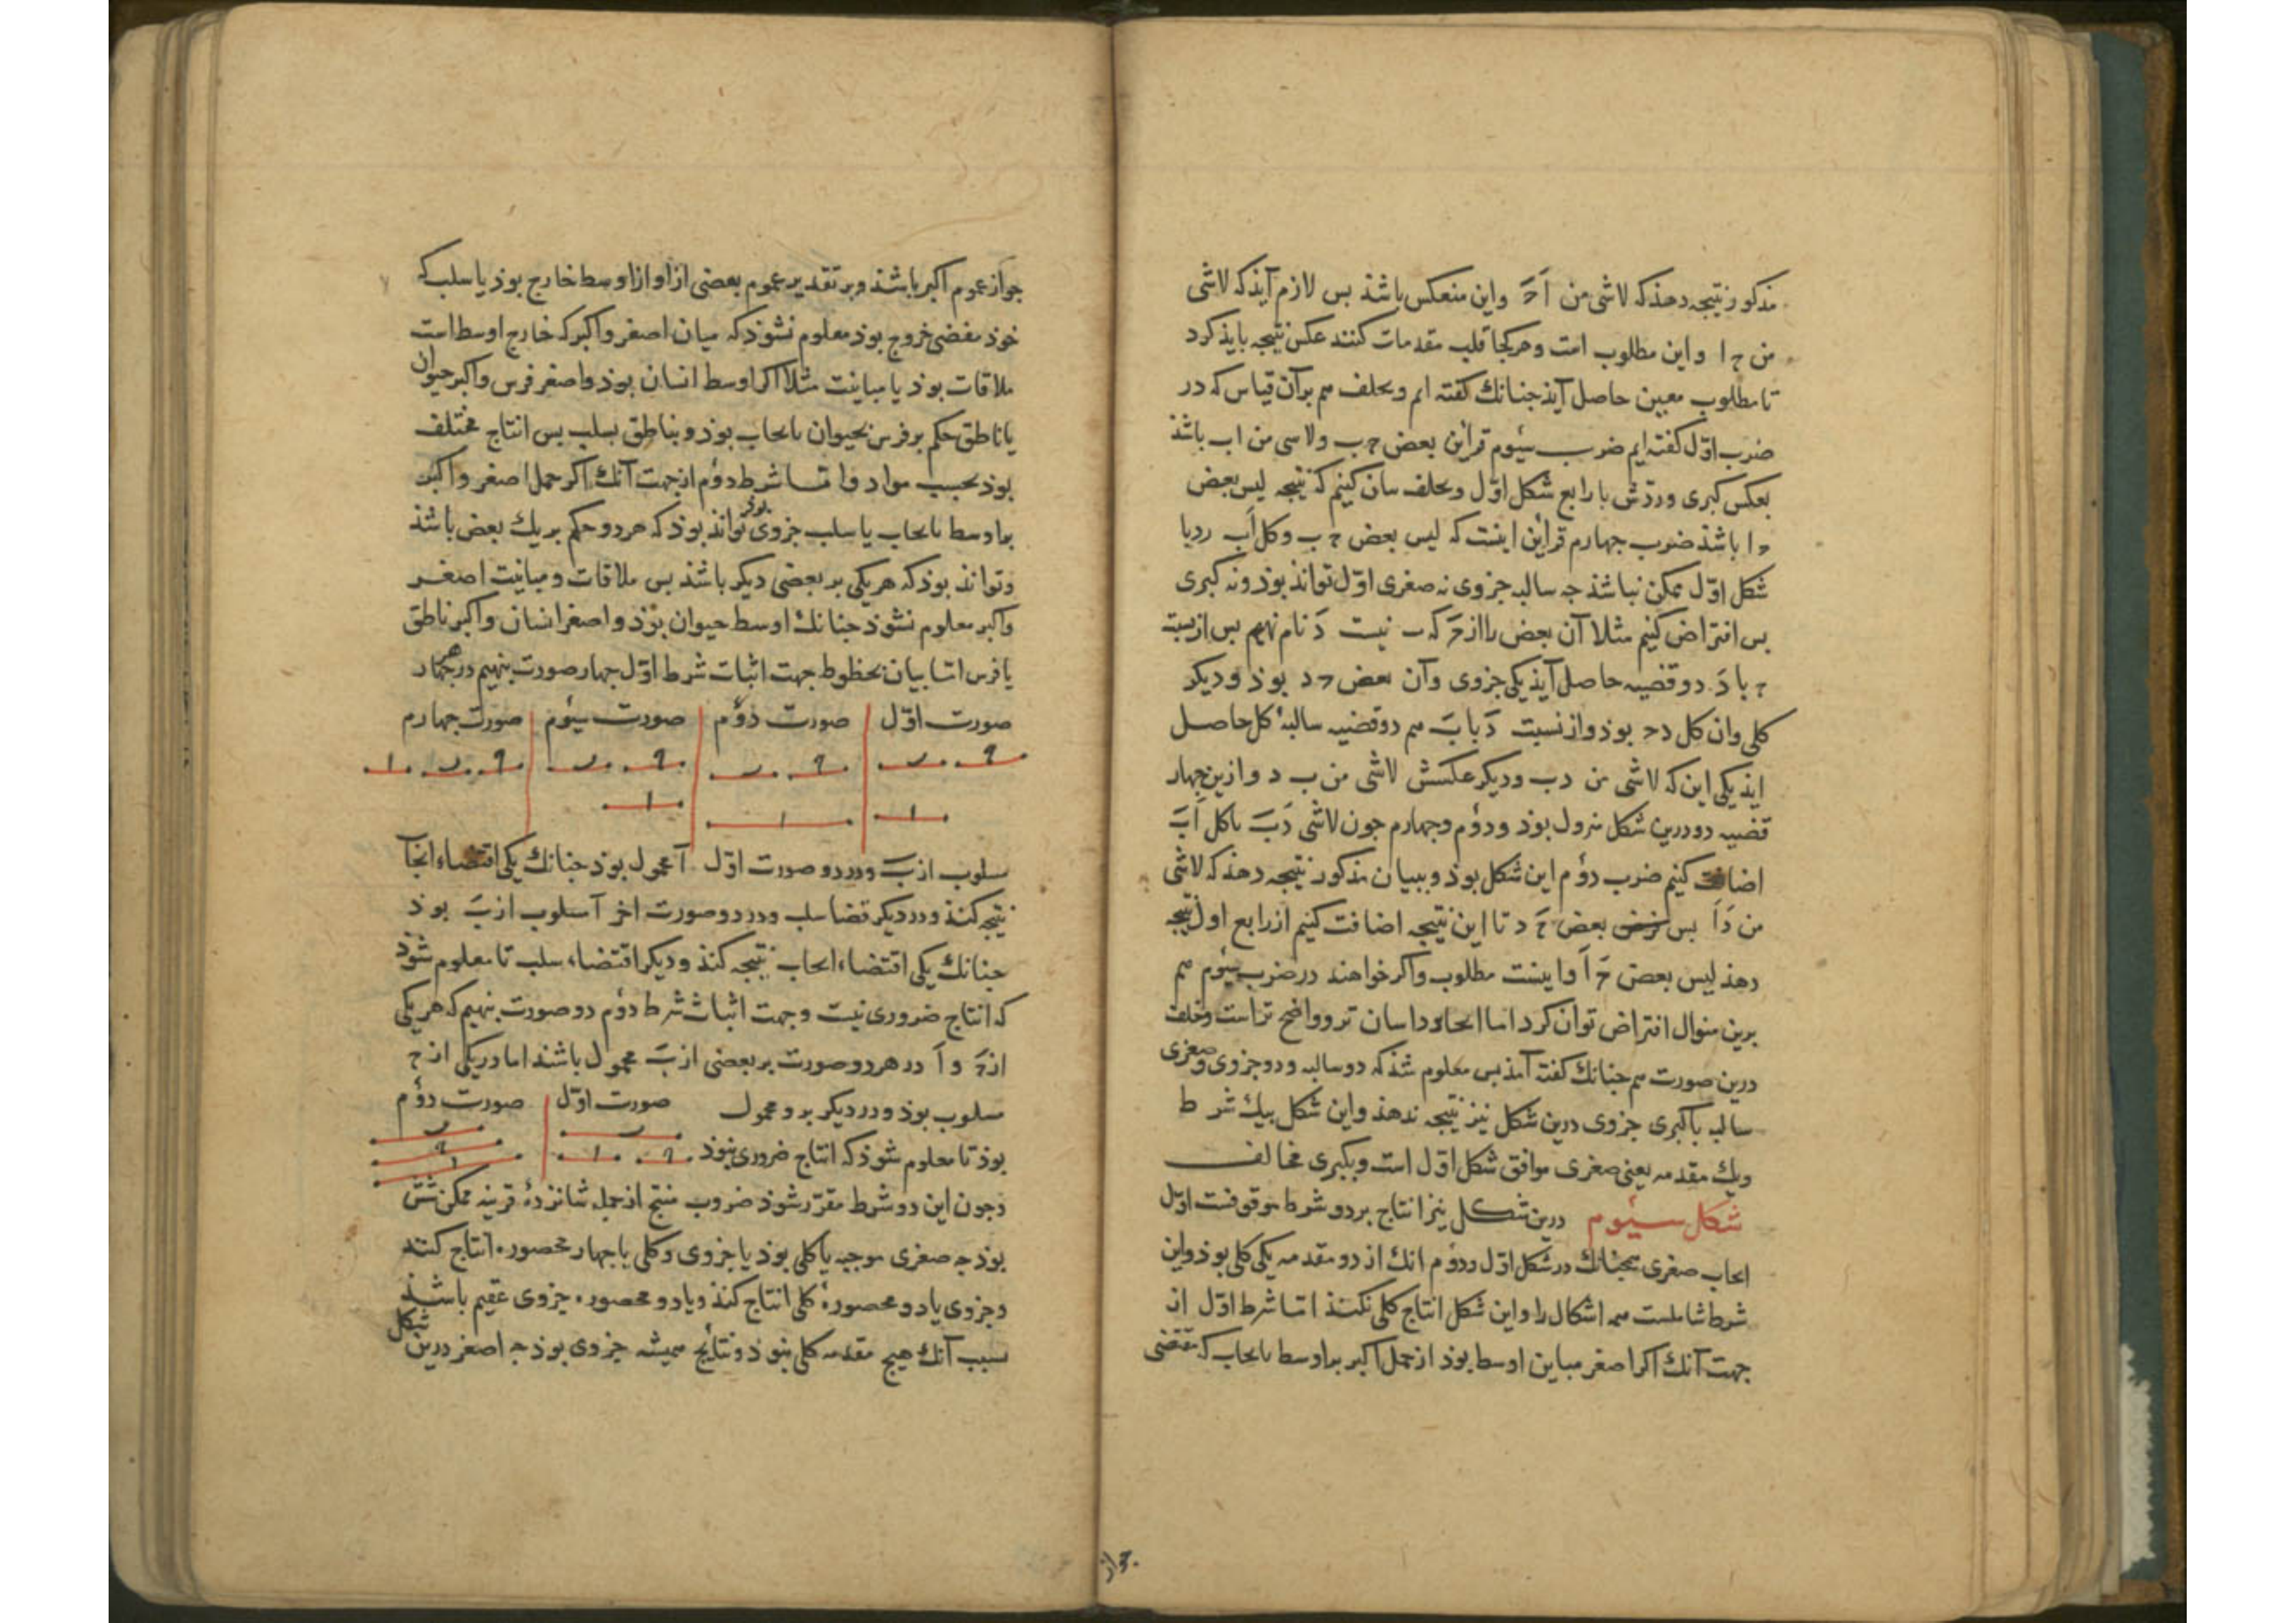 مذکور نتیجه دهذ که لاشی من اَ حَ واین منعکس باشذ بس لازم آیذ که لاشی
من ح ا واین مطلوب است وهرکجا قلب مقدمات کنند عکس نتیجه بایذ کرد
تا مطلوب معین حاصل آیذ جنانك کفته ایم وبخلف هم برآن قیاس که در
ضرب اوّل کفته ایم ضرب سیُوم قراین بعض ح ب ولاسی من اب باشذ
بعکس کبری وردّش با رابع شکل اوّل وبخلف بیان کنیم که نتیجه لیس بعض
ح ا باشذ ضرب جهارم قراین اینست که لیس بعض ح ب وکل اَب ردبا
شکل اوّل ممکن نباشذ جه سالبه جزوی نه صغری اوّل تواند بوذ ونه کبری
بس افتراض کنیم مثلا آن بعض را از حَ که ب نیست دَ نام نهیم بس از نسبت
ح با دَ دو قضیه حاصل آیذ یکی جزوی وآن بعض ح د بوذ ودیکر
کلی وان کل د ح بوذ واز نسبت دَ با بَ هم دو قضیه سالبهٔ کل حاصل
ایذ یکی این که لاشی من د ب ودیکر عکسش لاشی من ب د وازین جهار
قضیه دو درین شکل نرول بوذ ودوُم وجهارم جون لاشی دَبَ باکل اَبَ
اضافت کنیم ضرب دوُم این شکل بوذ وببیان مذکور نتیجه دهذ که لاشی
من دَاَ بس بعض حَ د تا این نتیجه اضافت کنیم از رابع اول نتیجه
دهذ لیس بعض حَ اَ واینست مطلوب واکر خواهند در ضرب سیُوم هم
برین منوال افتراض توان کرد اما اسان تر وواضح تر است وخلف
درین صورت هم جنانك کفته آمذ بس معلوم شذ که دو سالبه ودو جزوی وصغری
سالبه با کبری جزوی درین شکل نیز نتیجه ندهذ واین شکل بیك شرط
ویك مقدمه یعنی صغری موافق شکل اوّل است وبکبری مخالف
شکل سیُوم درین شکل نیز انتاج بر دو شرط موقوفست اوّل
ایجاب صغری همجنانك در شکل اوّل ودوُم انك از دو مقدمه یکی کلی بوذ واین
شرط شاملست همه اشکال را واین شکل انتاج کلی نکنذ امّا شرط اوّل از
جهت آنك اکر اصغر مباین اوسط بوذ از حمل اکبر براوسط بایجاب که مقتضی
جواز
جواز عموم اکبر باشذ وبر تقدیر عموم بعضی ازاو ازاوسط خارج بوذ یا سلب که
خوذ مقضی خروج بوذ معلوم نشوذ که میان اصغر واکبر که خارج اوسط است
ملاقات بوذ یا مباینت مثلا اکر اوسط انسان بوذ واصغر فرس واکبر حیوان
یا ناطق حکم بر فرس بحیوان بایجاب بوذ وبناطق بسلب بس انتاج مختلف
بوذ بحسب مواد وامّا شرط دوُم از جهت آنك اکر حمل اصغر واکبر
براوسط بایجاب یا سلب جزوی بوذ تواند بوذ که هر دو حکم بریك بعض باشذ
وتواند بوذ که هر یکی بر بعضی دیکر باشذ بس ملاقات ومباینت اصغر
واکبر معلوم نشوذ جنانك اوسط حیوان بوذ واصغر انسان واکبر ناطق
یا فرس امّا بیان بخطوط جهت اثبات شرط اوّل جهار صورت بنهیم در هر جهار
صورت اوّل صورت دوُم صورت سیُوم صورت جهارم
ح ب ح ب ح ب ح ب ا
ا ا ا
مسلوب از بَ ودر دو صورت اوّل آ محمول بوذ جنانك یکی اقتضاء ایجاب
نتیجه کنذ ودر دیکر قضا سلب ودر دو صورت اخر آ مسلوب از بَ بوذ
جنانك یکی اقتضاء ایجاب نتیجه کنذ ودیکر اقتضاء سلب تا معلوم شوذ
که انتاج ضروری نیست وجهت اثبات شرط دوُم دو صورت بنهیم که هر یکی
از حَ و اَ در هر دو صورت بر بعضی از بَ محمول باشند اما در یکی از ح
مسلوب بوذ ودر دیکر برو محمول صورت اوّل صورت دوُم
بوذ تا معلوم شوذ که انتاج ضروری نبوذ ب ح ا ب ح ا
وجون این دو شرط مقرّر شوذ ضروب منتج از جمله شانزدهٔ قرینه ممکن شش
بوذ جه صغری موجبه یا کلی بوذ یا جزوی وکلی با جهار محصوره انتاج کند
وجزوی با دو محصورهٔ کلی انتاج کنذ وبا دو محصوره جزوی عقیم باشذ
بسبب آنك هیج مقدمه کلی نبوذ ونتایج همیشه جزوی بوذ جه اصغر درین شکل